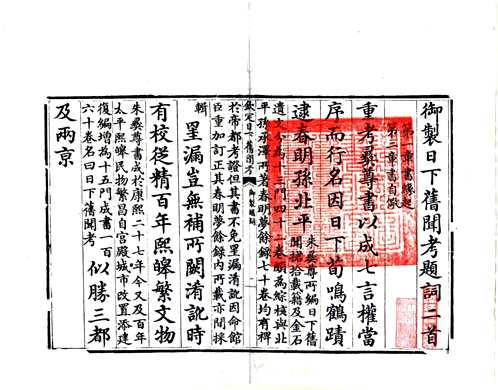 御製日下舊聞考題詞二首
重考彝尊書以成七言權當
序而行名因日下荀鳴鶴蹟
逮春明孫北平
朱彝尊所編日下舊
聞捃拾載籍及金石
遺文
平孫承澤所著春明夢餘錄七十卷均有稗
欽定日下舊聞考
於帝都考證但其書不免罣漏淆訛因命館
臣重加訂正其春明夢餘錄内所載亦間採
輯
罣漏豈無補所闕淆訛時
有校從精百年熙皞繁文物
朱彝尊書成於康熙二十七年今又及百年
太平熙皞民物繁昌自宫殿城市改置添建
復編增為十五門成書一百
六十卷名曰日下舊聞考
似勝三都
及兩京